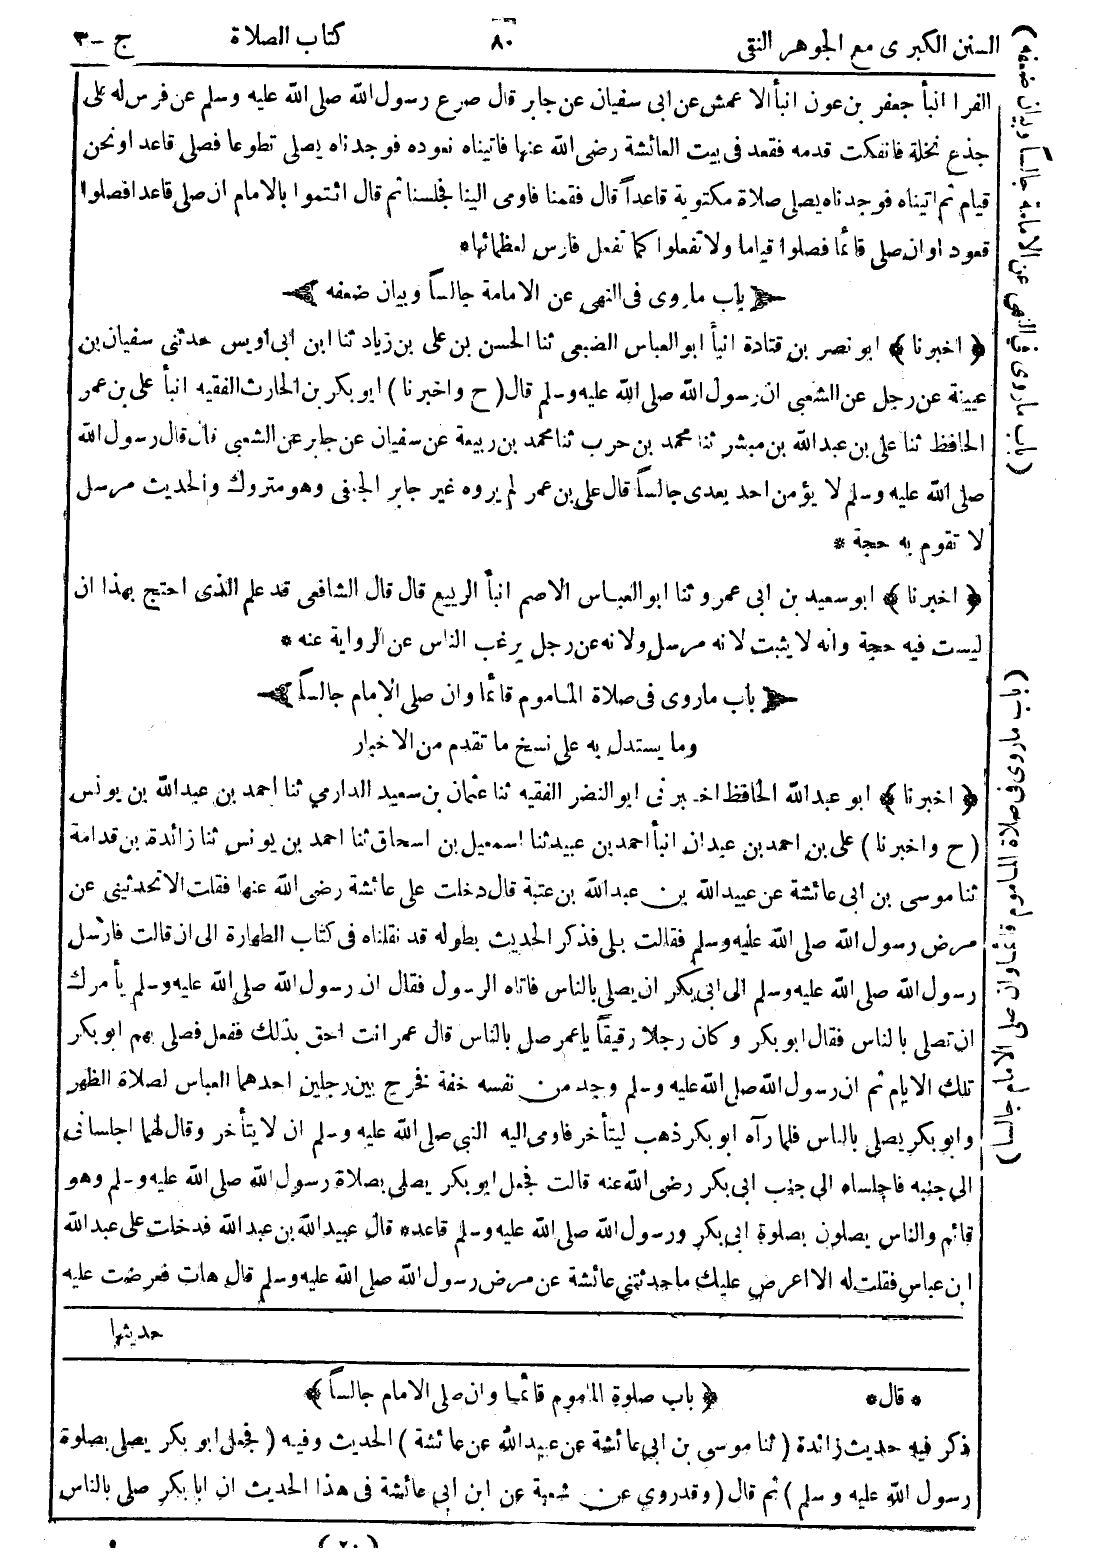 السنن الكبرى مع الجوهر النقى ٨٠ كتاب الصلاة ج -٣
الفرا انبأ جعفر بن عون انبأ الاعمش عن ابى سفيان عن جابر قال صرع رسول الله صلى الله عليه وسلم عن فرس له على
جذع نخلة فانفكت قدمه فقعد فى بيت العائشة رضى الله عنها فاتيناه نعوده فوجدناه يصلى تطوعا فصلى قاعدا ونحن
قيام ثم اتيناه فوجدناه يصلى صلاة مكتوبة قاعداً قال فقمنا فاومى الينا فجلسنا ثم قال ائتموا بالامام ان صلى قاعدا فصلوا
قعودا وان صلى قائما فصلوا قياما ولا تفعلوا كما تفعل فارس لعظمائها*
باب ما روى فى النهى عن الامامة جالساً وبيان ضعفه
﴿ اخبرنا ﴾ ابو نصر بن قتادة انبأ ابو العباس الضبعى ثنا الحسن بن على بن زياد ثنا ابن ابى اويس حدثنى سفيان بن
عيينة عن رجل عن الشعبى ان رسول الله صلى الله عليه وسلم قال (ح واخبرنا) ابو بكر بن الحارث الفقيه انبأ على بن عمر
الحافظ ثنا على بن عبد الله بن مبشر ثنا محمد بن حرب ثنا محمد بن ربيعة عن سفيان عن جابر عن الشعبى قال قال رسول الله
صلى الله عليه وسلم لا يؤمن احد بعدى جالساً قال على بن عمر لم يروه غير جابر الجعفى وهو متروك والحديث مرسل
لا تقوم به حجة *
﴿ اخبرنا ﴾ ابو سعيد بن ابى عمرو ثنا ابو العباس الاصم انبأ الربيع قال قال الشافعى قد علم الذى احتج بهذا ان
ليست فيه حجة وانه لا يثبت لانه مرسل ولانه عن رجل يرغب الناس عن الرواية عنه *
باب ما روى فى صلاة المأموم قائما وان صلى الامام جالساً
وما يستدل به على نسخ ما تقدم من الاخبار
﴿ اخبرنا ﴾ ابو عبد الله الحافظ اخبرنى ابو النضر الفقيه ثنا عثمان بن سعيد الدارمي ثنا احمد بن عبد الله بن يونس
(ح واخبرنا) على بن احمد بن عبدان انبأ احمد بن عبيد ثنا اسمعيل بن اسحاق ثنا احمد بن يونس ثنا زائدة بن قدامة
ثنا موسى بن ابى عائشة عن عبيد الله بن عبد الله بن عتبة قال دخلت على عائشة رضى الله عنها فقلت الا تحدثينى عن
مرض رسول الله صلى الله عليه وسلم فقالت بلى فذكر الحديث بطوله قد نقلناه فى كتاب الطهارة الى ان قالت فارسل
رسول الله صلى الله عليه وسلم الى ابى بكر ان يصلى بالناس فاتاه الرسول فقال ان رسول الله صلى الله عليه وسلم يأمرك
ان تصلى بالناس فقال ابو بكر وكان رجلا رقيقاً يا عمر صل بالناس قال عمر انت احق بذلك ففعل فصلى بهم ابو بكر
تلك الايام ثم ان رسول الله صلى الله عليه وسلم وجد من نفسه خفة فخرج بين رجلين احدهما العباس لصلاة الظهر
وابو بكر يصلى بالناس فلما رآه ابو بكر ذهب ليتأخر فاومى اليه النبى صلى الله عليه وسلم ان لا يتأخر وقال لهما اجلسانى
الى جنبه فاجلساه الى جنب ابى بكر رضى الله عنه قالت فجعل ابو بكر يصلى بصلاة رسول الله صلى الله عليه وسلم وهو
قائم والناس يصلون بصلوة ابى بكر ورسول الله صلى الله عليه وسلم قاعد* قال عبيد الله بن عبد الله فدخلت على عبد الله
ابن عباس فقلت له الا اعرض عليك ما حدثتنى عائشة عن مرض رسول الله صلى الله عليه وسلم قال هات فعرضت عليه
حديثها
* قال* ﴿ باب صلوة المأموم قائما وان صلى الامام جالساً ﴾
ذكر فيه حديث زائدة (ثنا موسى بن ابى عائشة عن عبيد الله عن عائشة) الحديث وفيه (فجعل ابو بكر يصلى بصلوة
رسول الله عليه وسلم) ثم قال (وقد روي عن شعبة عن ابن ابى عائشة فى هذا الحديث ان ابا بكر صلى بالناس
(باب ما روى فى النهى عن الامامة جالساً وبيان ضعفه)
(باب ما روى فى صلاة المأموم قائما وان صلى الامام جالسا)
(٢٠)